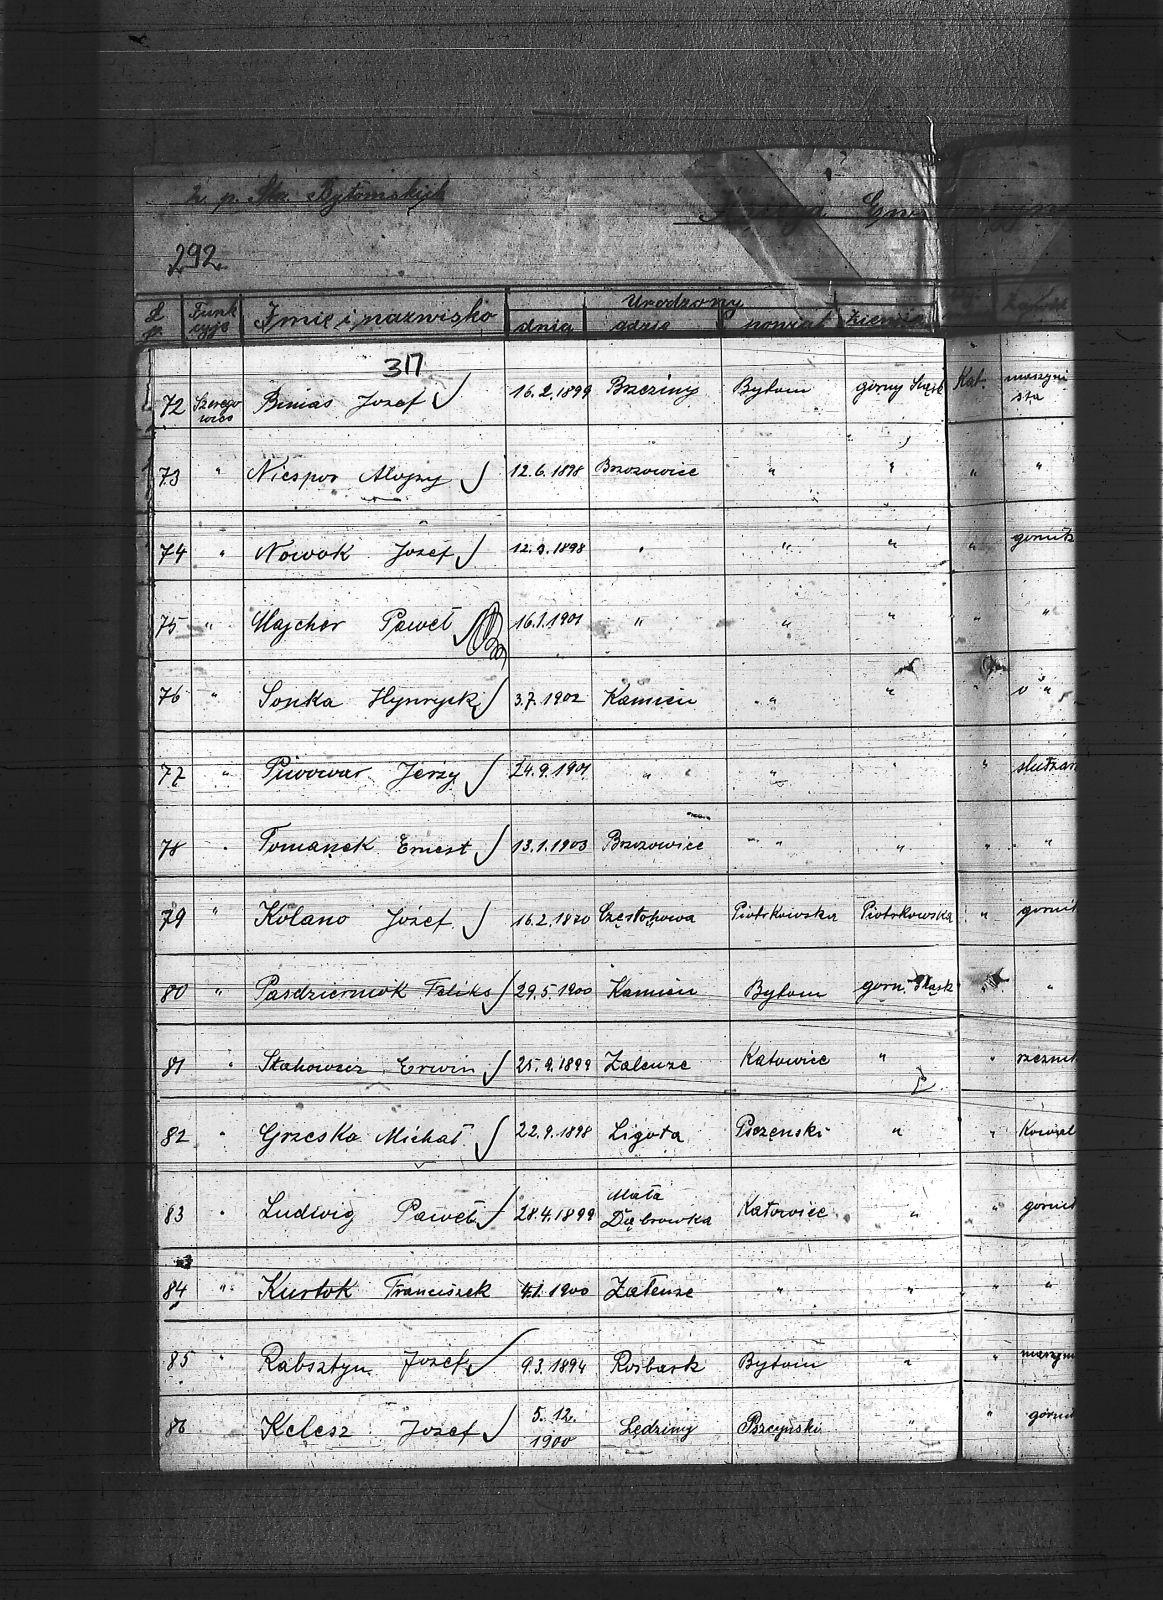 2. p. Str. Bytomskich
Księga Ewidencyjna
292.
L. p. Funkcyje Imię i nazwisko Urodzony
dnia gdzie powiat Ziemia
317
72 Szeregowiec Binias Jozef 16.2.1899 Brzeziny Bytom górny Śląsk Kat. maszynista
73 " Niespor Alojzy 12.6.1898 Brzozowice " " " "
74 " Nowak Jozef 12.3.1898 " " " " gornik
75 " Majcher Paweł 16.1.1901 " " " " "
76 " Sonka Hynryck 3.7.1902 Kamien " " " "
77 " Piwowar Jerzy 24.9.1901 " " " " " slutzar
78 " Tomanek Ernest 13.1.1903 Brzozowice " " " " "
79 " Kolano Józef 16.2.1870 Częstohowa Piotrkowska Piotrkowska " gornik
80 " Pasdziernok Feliks 29.5.1900 Kamien Bytom gorn. Śląsk " "
81 " Stahowicz Erwin 25.9.1899 Zalenze Katowice " " rzeznik
82 " Grzeska Michał 22.9.1898 Ligota Pszczenski " " Kowal
83 " Ludwig Paweł 28.4.1899 Mała Dąbrowka Katowice " " gornik
84 " Kurtok Franciszek 4.1.1900 Załenze " " " "
85 " Rabsztyn Jozef 9.3.1894 Rosbark Bytom " " maszyni
86 Kelesz Jozef 5.12.1900 Lędziny Pszczyński " " górni